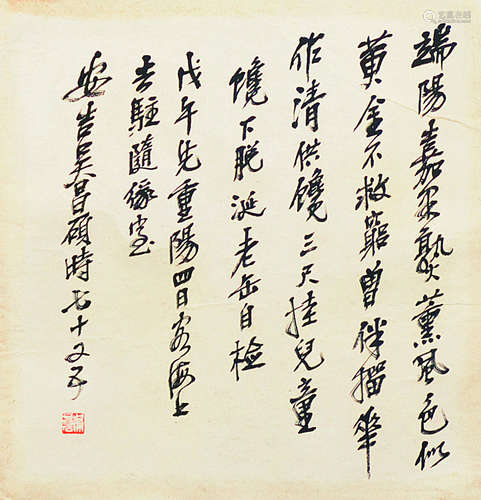 端陽嘉果熟薰風色似
黄金不救窮曾伴榴華
作清供饞三尺挂兒童
饞下脫涎老缶自檢
戊午先重陽四日客海上
去駐隨緣室
安吉吳昌碩時七十又五